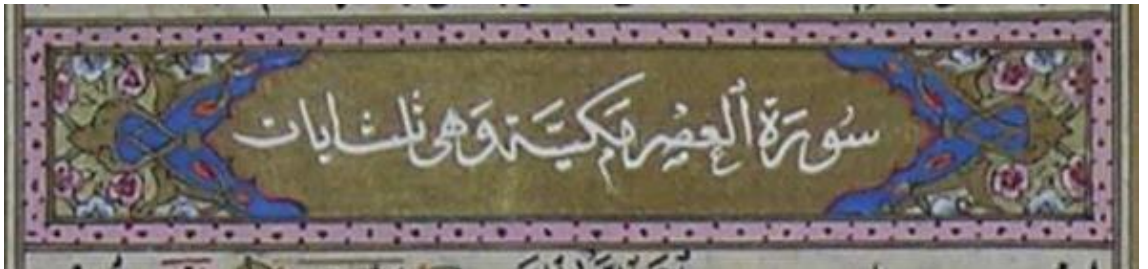 سُورَةُ الْعَصْرِ مَكِّيَّة وَهِيَ ثَلٰث ايات